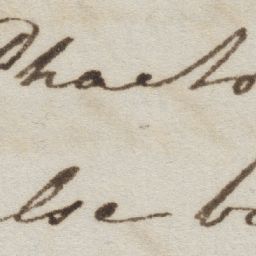 Phaeto
lse b